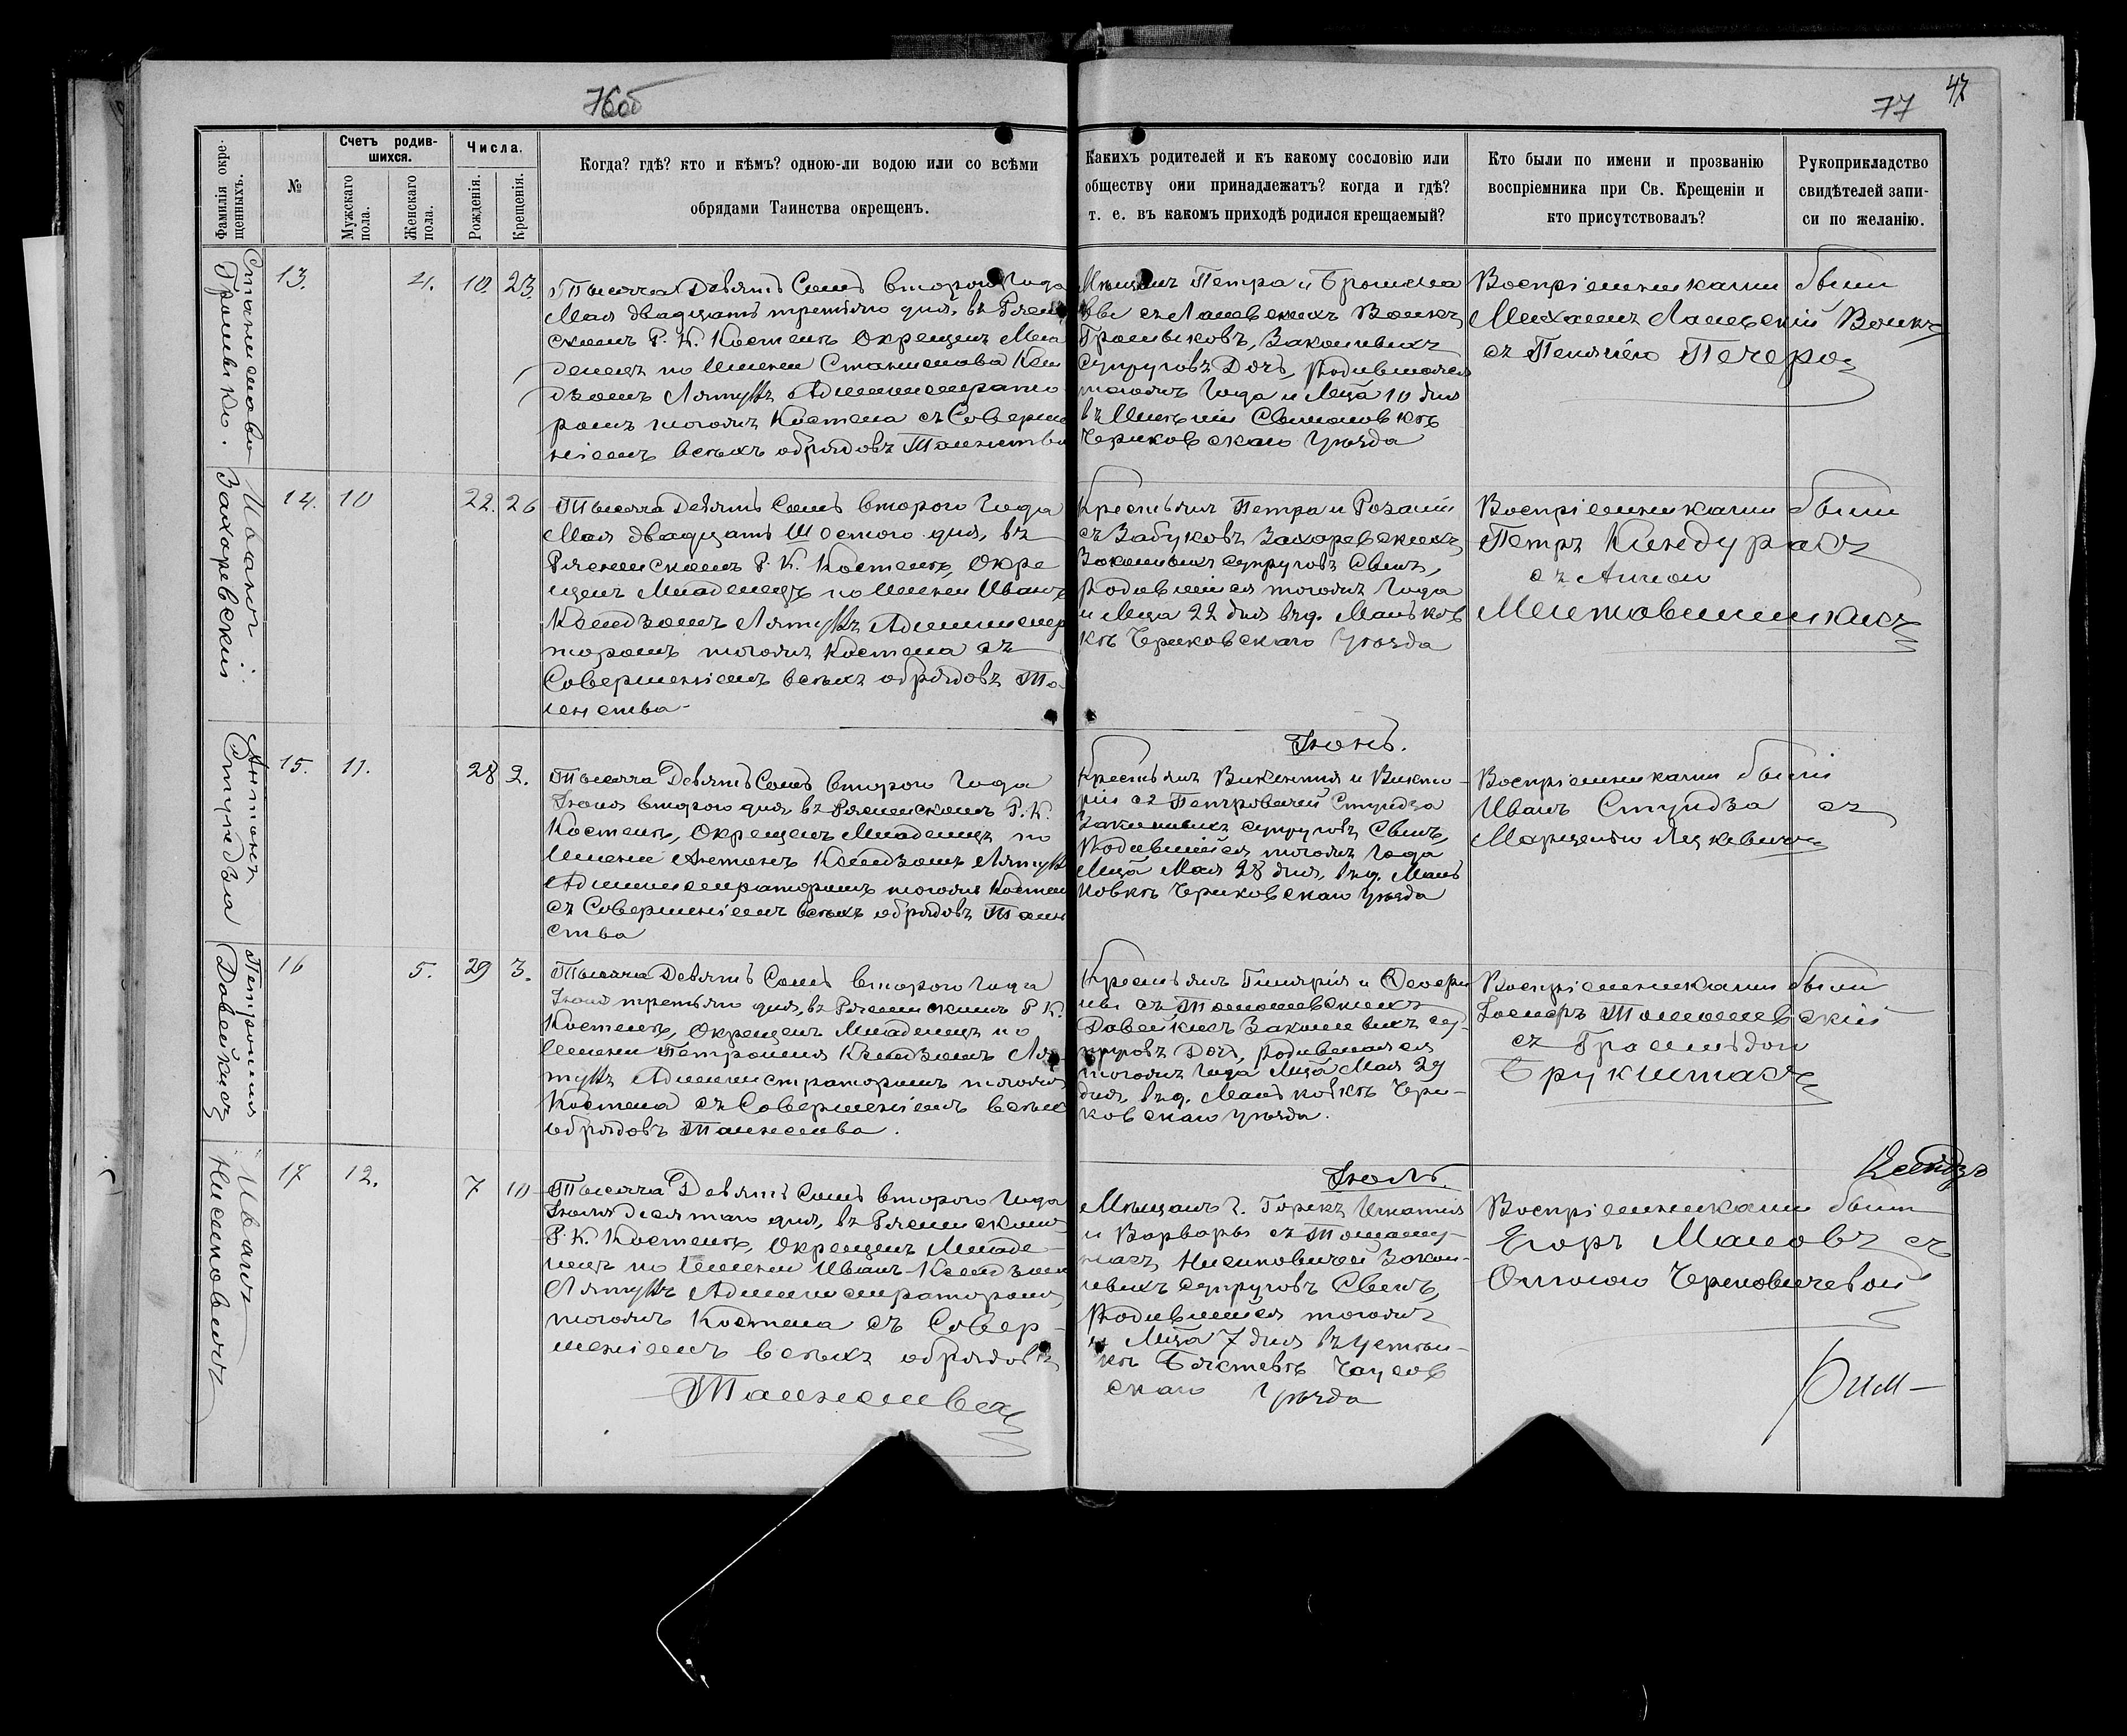 76об
47
77
Фамилія окрещенныхъ.
№
Счетъ родившихся.
Мужскаго пола.
Женскаго пола.
Числа.
Рожденія.
Крещенія.
Когда? гдѣ? кто и кѣмъ? одною-ли водою или со всѣми
обрядами Таинства окрещенъ.
Какихъ родителей и къ какому сословію или
обществу они принадлежатъ? когда и гдѣ?
т. е. въ какомъ приходѣ родился крещаемый?
Кто были по имени и прозванію
воспріемника при Св. Крещеніи и
кто присутствовалъ?
Рукоприкладство
свидѣтелей запи-
си по желанію.
Станислава
Громыко.
13.
4.
10.
23.
Тысяча Девять Сотъ второго Года
Мая двадцать третьяго дня, въ Рясен
скомъ Р. К. Костелѣ Окрещенъ Мла
денецъ по Имени Станислава Ксен
дзомъ Администрато
ромъ тогожъ Костела съ Соверше
ніемъ всѣхъ обрядовъ Таинства
Мѣщанъ Петра и Бронисла
вы съ Войкъ
Громыковъ, Законныхъ
супруговъ Дочь, Родившаяся
тогожъ Года и Мца 10 дня
въ Имѣніи
Чериковскаго Уѣзда
Воспріемниками были
Михаилъ Войкъ
съ Печеро
Иванъ
Захаревскій
14.
10
22.
26
Тысяча Девять Сотъ второго Года
Мая двадцать Шестого дня, въ
Рясенскомъ Р. К. Костелѣ, Окре
щенъ Младенецъ по Имени Иванъ
Ксендзомъ Администра
торомъ тогожъ Костела съ
Совершеніемъ всѣхъ обрядовъ Та
инства
Крестьянъ Петра и Розаліи
съ Забуковъ Захаревскихъ
Законныхъ супруговъ Сынъ,
Родившійся тогожъ Года
и Мца 22 дня въ д. Маньков
кѣ Чериковскаго Уѣзда
Воспріемниками были
Петръ Киндурасъ
съ Анною
Антонъ
Стундза
15.
11.
28
2.
Тысяча Девять Сотъ второго Года
Іюня второго дня, въ Рясенскомъ Р. К.
Костелѣ, Окрещенъ Младенецъ по
Имени Антонъ Ксендзомъ
Администраторомъ тогожъ Костела
съ Совершеніемъ всѣхъ обрядовъ Таин
ства
Іюнь.
Крестьянъ Викентія и Викто-
ріи съ Петровичей Стундза
Законныхъ супруговъ Сынъ,
Родившійся тогожъ Года
Мца Мая 28 дня, въ д. Мань
ковкѣ Чериковскаго Уѣзда
Воспріемниками были
Иванъ Стундза съ
Петронися
Довейкисъ
16
5.
29
3.
Тысяча Девять Сотъ второго Года
Іюня третьяго дня, въ Рясенскомъ Р К.
Костелѣ, Окрещенъ Младенецъ по
Имени Петронися Ксендзомъ
Администраторомъ тогожъ
Костела съ Совершеніемъ всѣхъ
обрядовъ Таинства.
Крестьянъ Гилярія и
съ Томашевскихъ
Довейкисъ Законныхъ су-
пруговъ Дочь, Родившаяся
тогожъ Года Мца Мая 29
дня, въ д. Маньковкѣ Чери-
ковскаго уѣзда.
Воспріемниками были
Томашевскій
съ
Брукштасъ
Иванъ
Нисиповичъ
17
12.
7
10
Тысяча Девять Сотъ второго Года
Іюля десятаго дня, въ Рясенскомъ
Р. К. Костелѣ, Окрещенъ Младе-
нецъ по Имени Иванъ Ксендзомъ
Администраторомъ
тогожъ Костела съ Совер-
шеніемъ всѣхъ обрядовъ
Таинства
Іюль.
Мѣщанъ г. Горекъ Игнатія
и Варвары съ
Нисиповичей Закон-
ныхъ супруговъ Сынъ,
Родившійся тогожъ
Мца 7 дня въ
Чаусов
скаго Уѣзда
Ксендзъ
Воспріемниками были
Егоръ Маловъ съ